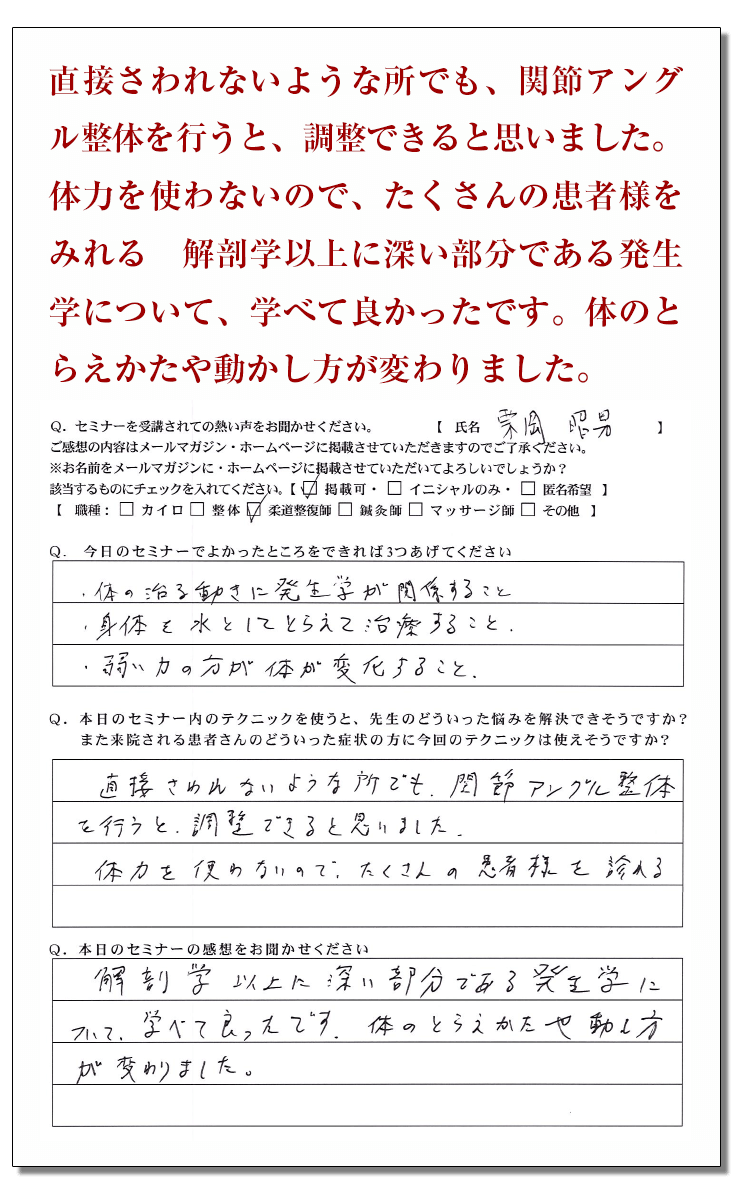 直接さわれないような所でも、関節アング
ル整体を行うと、調整できると思いました。
体力を使わないので、たくさんの患者様を
みれる　解剖学以上に深い部分である発生
学について、学べて良かったです。体のと
らえかたや動かし方が変わりました。
Q．セミナーを受講されての熱い声をお聞かせください。　【 氏名　岡 昭男　】
ご感想の内容はメールマガジン・ホームページに掲載させていただきますのでご了承ください。
※お名前をメールマガジンに・ホームページに掲載させていただいてよろしいでしょうか？
該当するものにチェックを入れてください。【 ☑ 掲載可・ □ イニシャルのみ・ □ 匿名希望 】
【 職種： □ カイロ □ 整体 ☑ 柔道整復師 □ 鍼灸師 □ マッサージ師 □ その他 】
Q．今日のセミナーでよかったところをできれば3つあげてください
・体の治る動きに発生学が関係すること
・身体を水としてとらえて治療すること.
・弱い力の方が体が変化すること.
Q．本日のセミナー内のテクニックを使うと、先生のどういった悩みを解決できそうですか？
また来院される患者さんのどういった症状の方に今回のテクニックは使えそうですか？
直接さわれないような所でも、関節アングル整体
を行うと、調整できると思いました.
体力を使わないので、たくさんの患者様を診れる
Q．本日のセミナーの感想をお聞かせください
解剖学以上に深い部分である発生学に
ついて、学べて良ったです. 体のとらえかたや動し方
が変わりました。